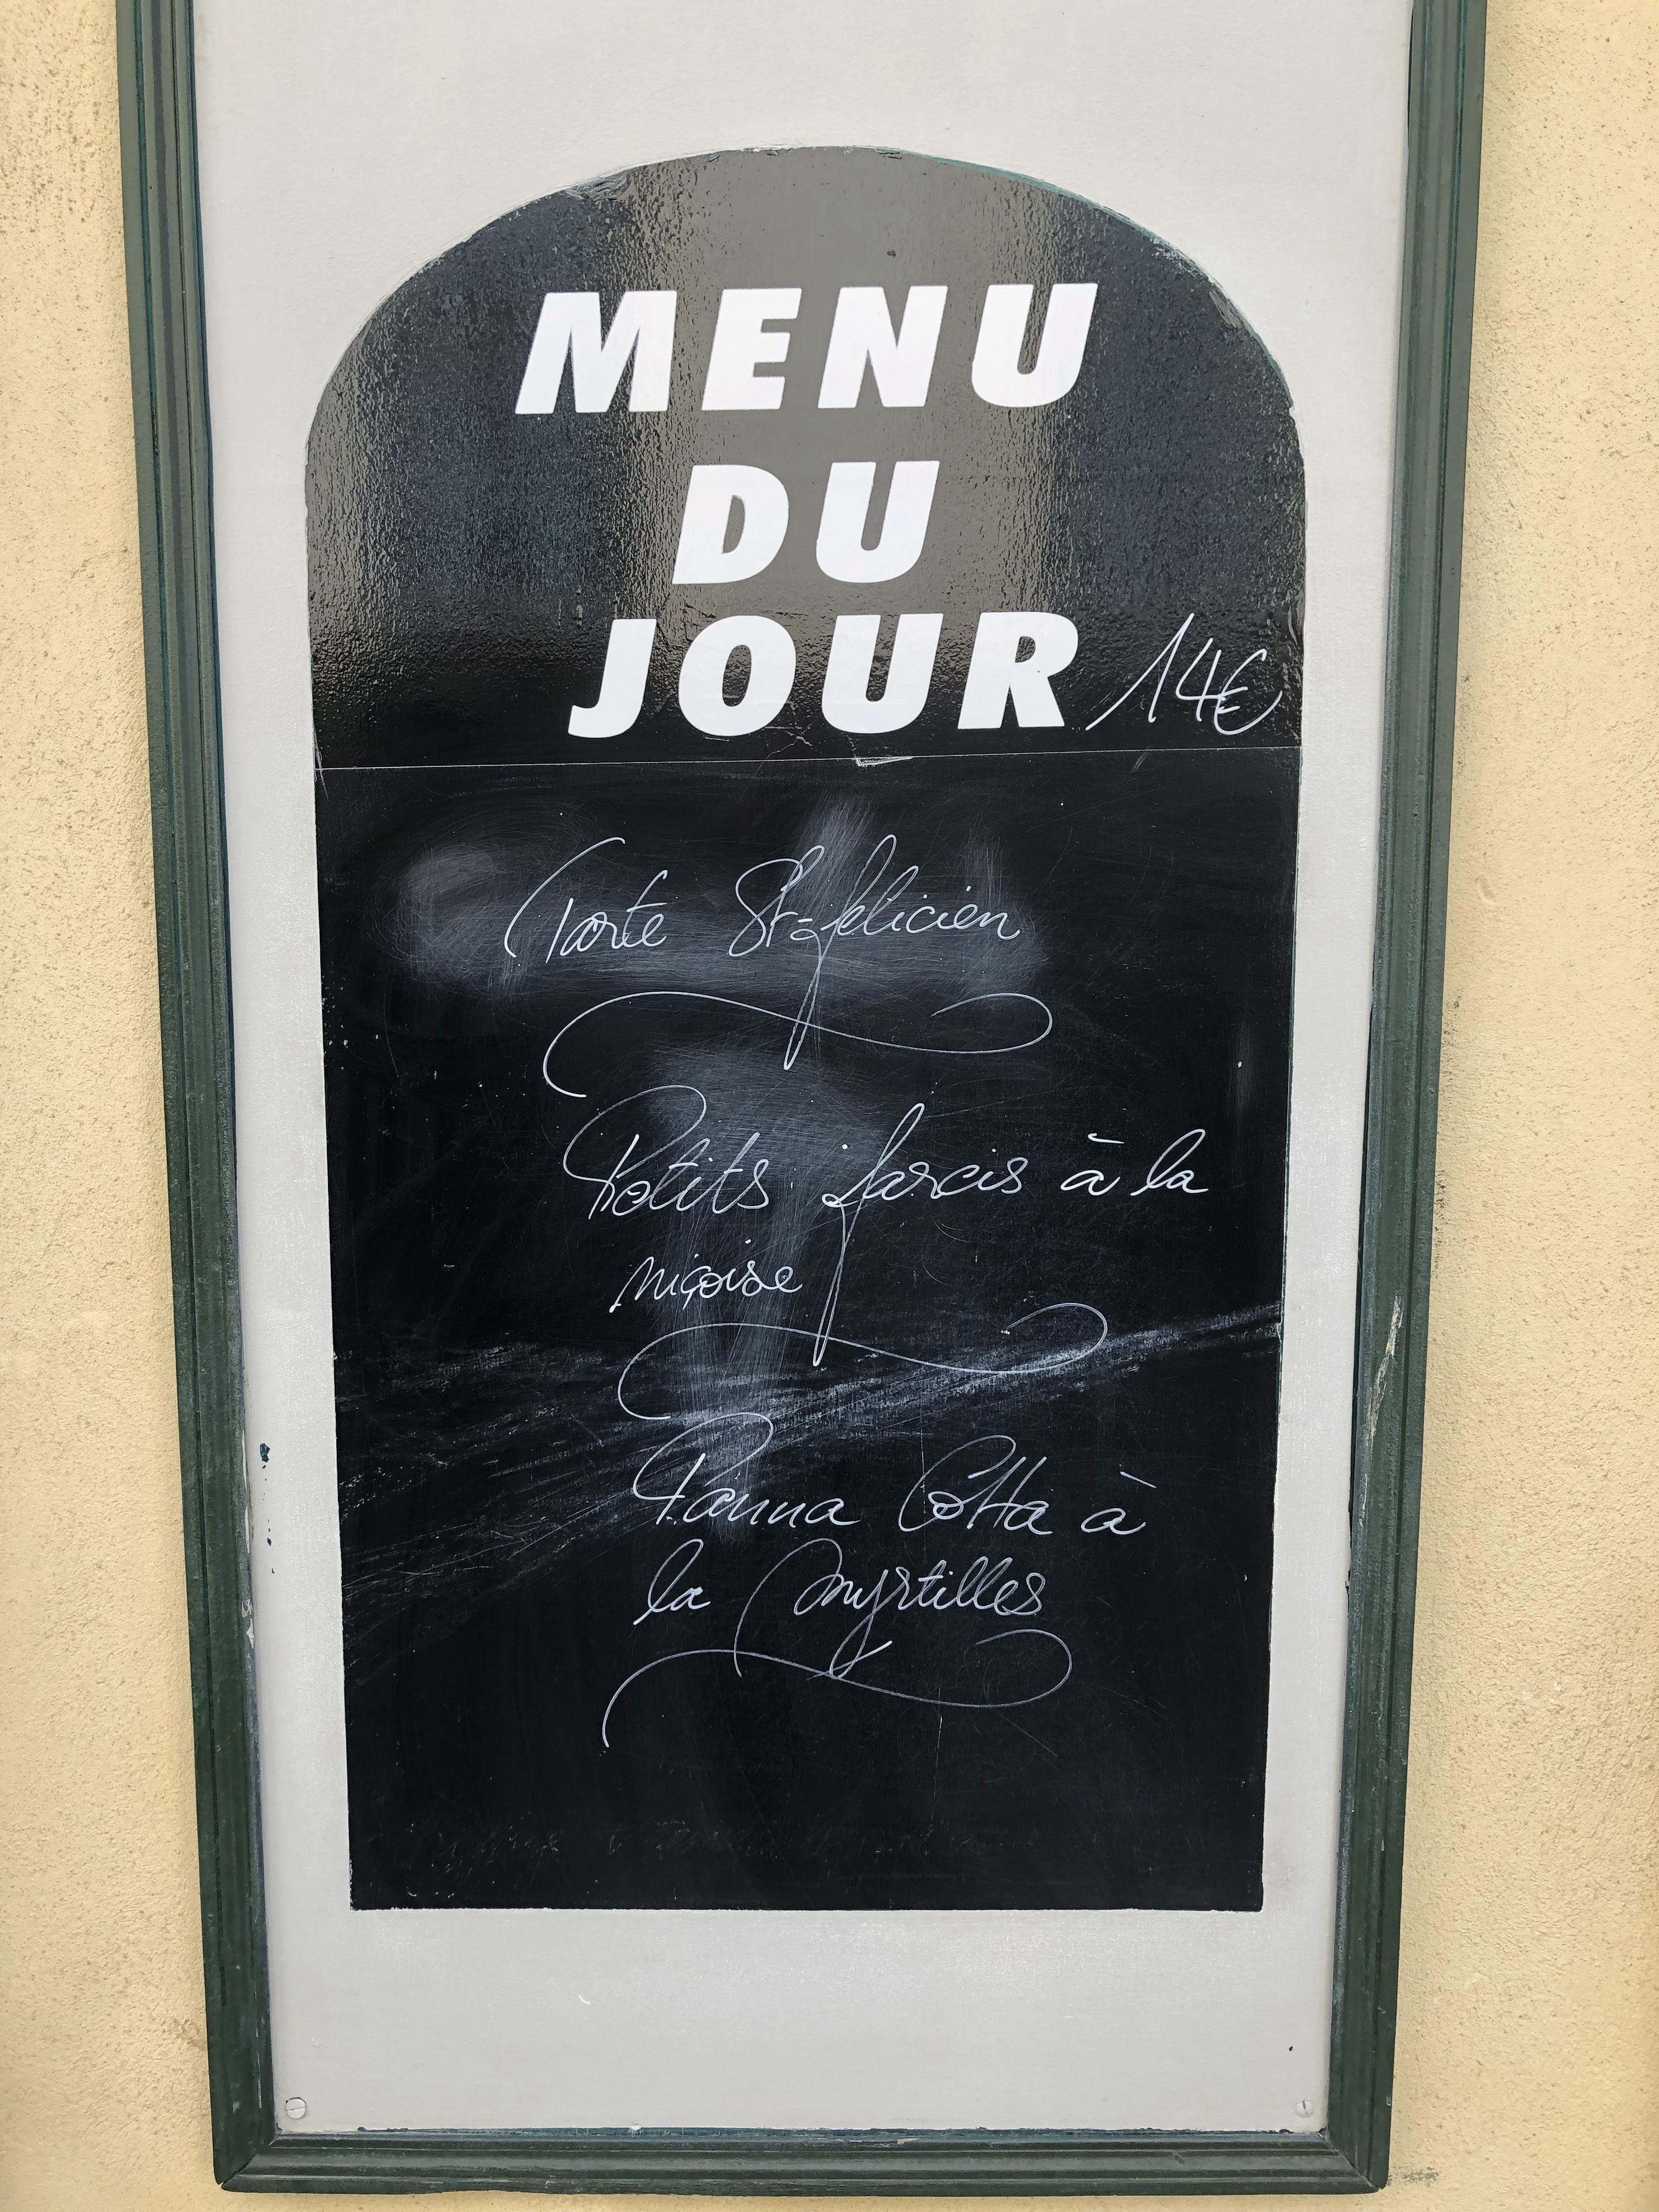 MENU
DU
JOUR 14€
Tarte St-felicien
Petits farcis à la
niçoise
Panna Cotta à
la Myrtilles